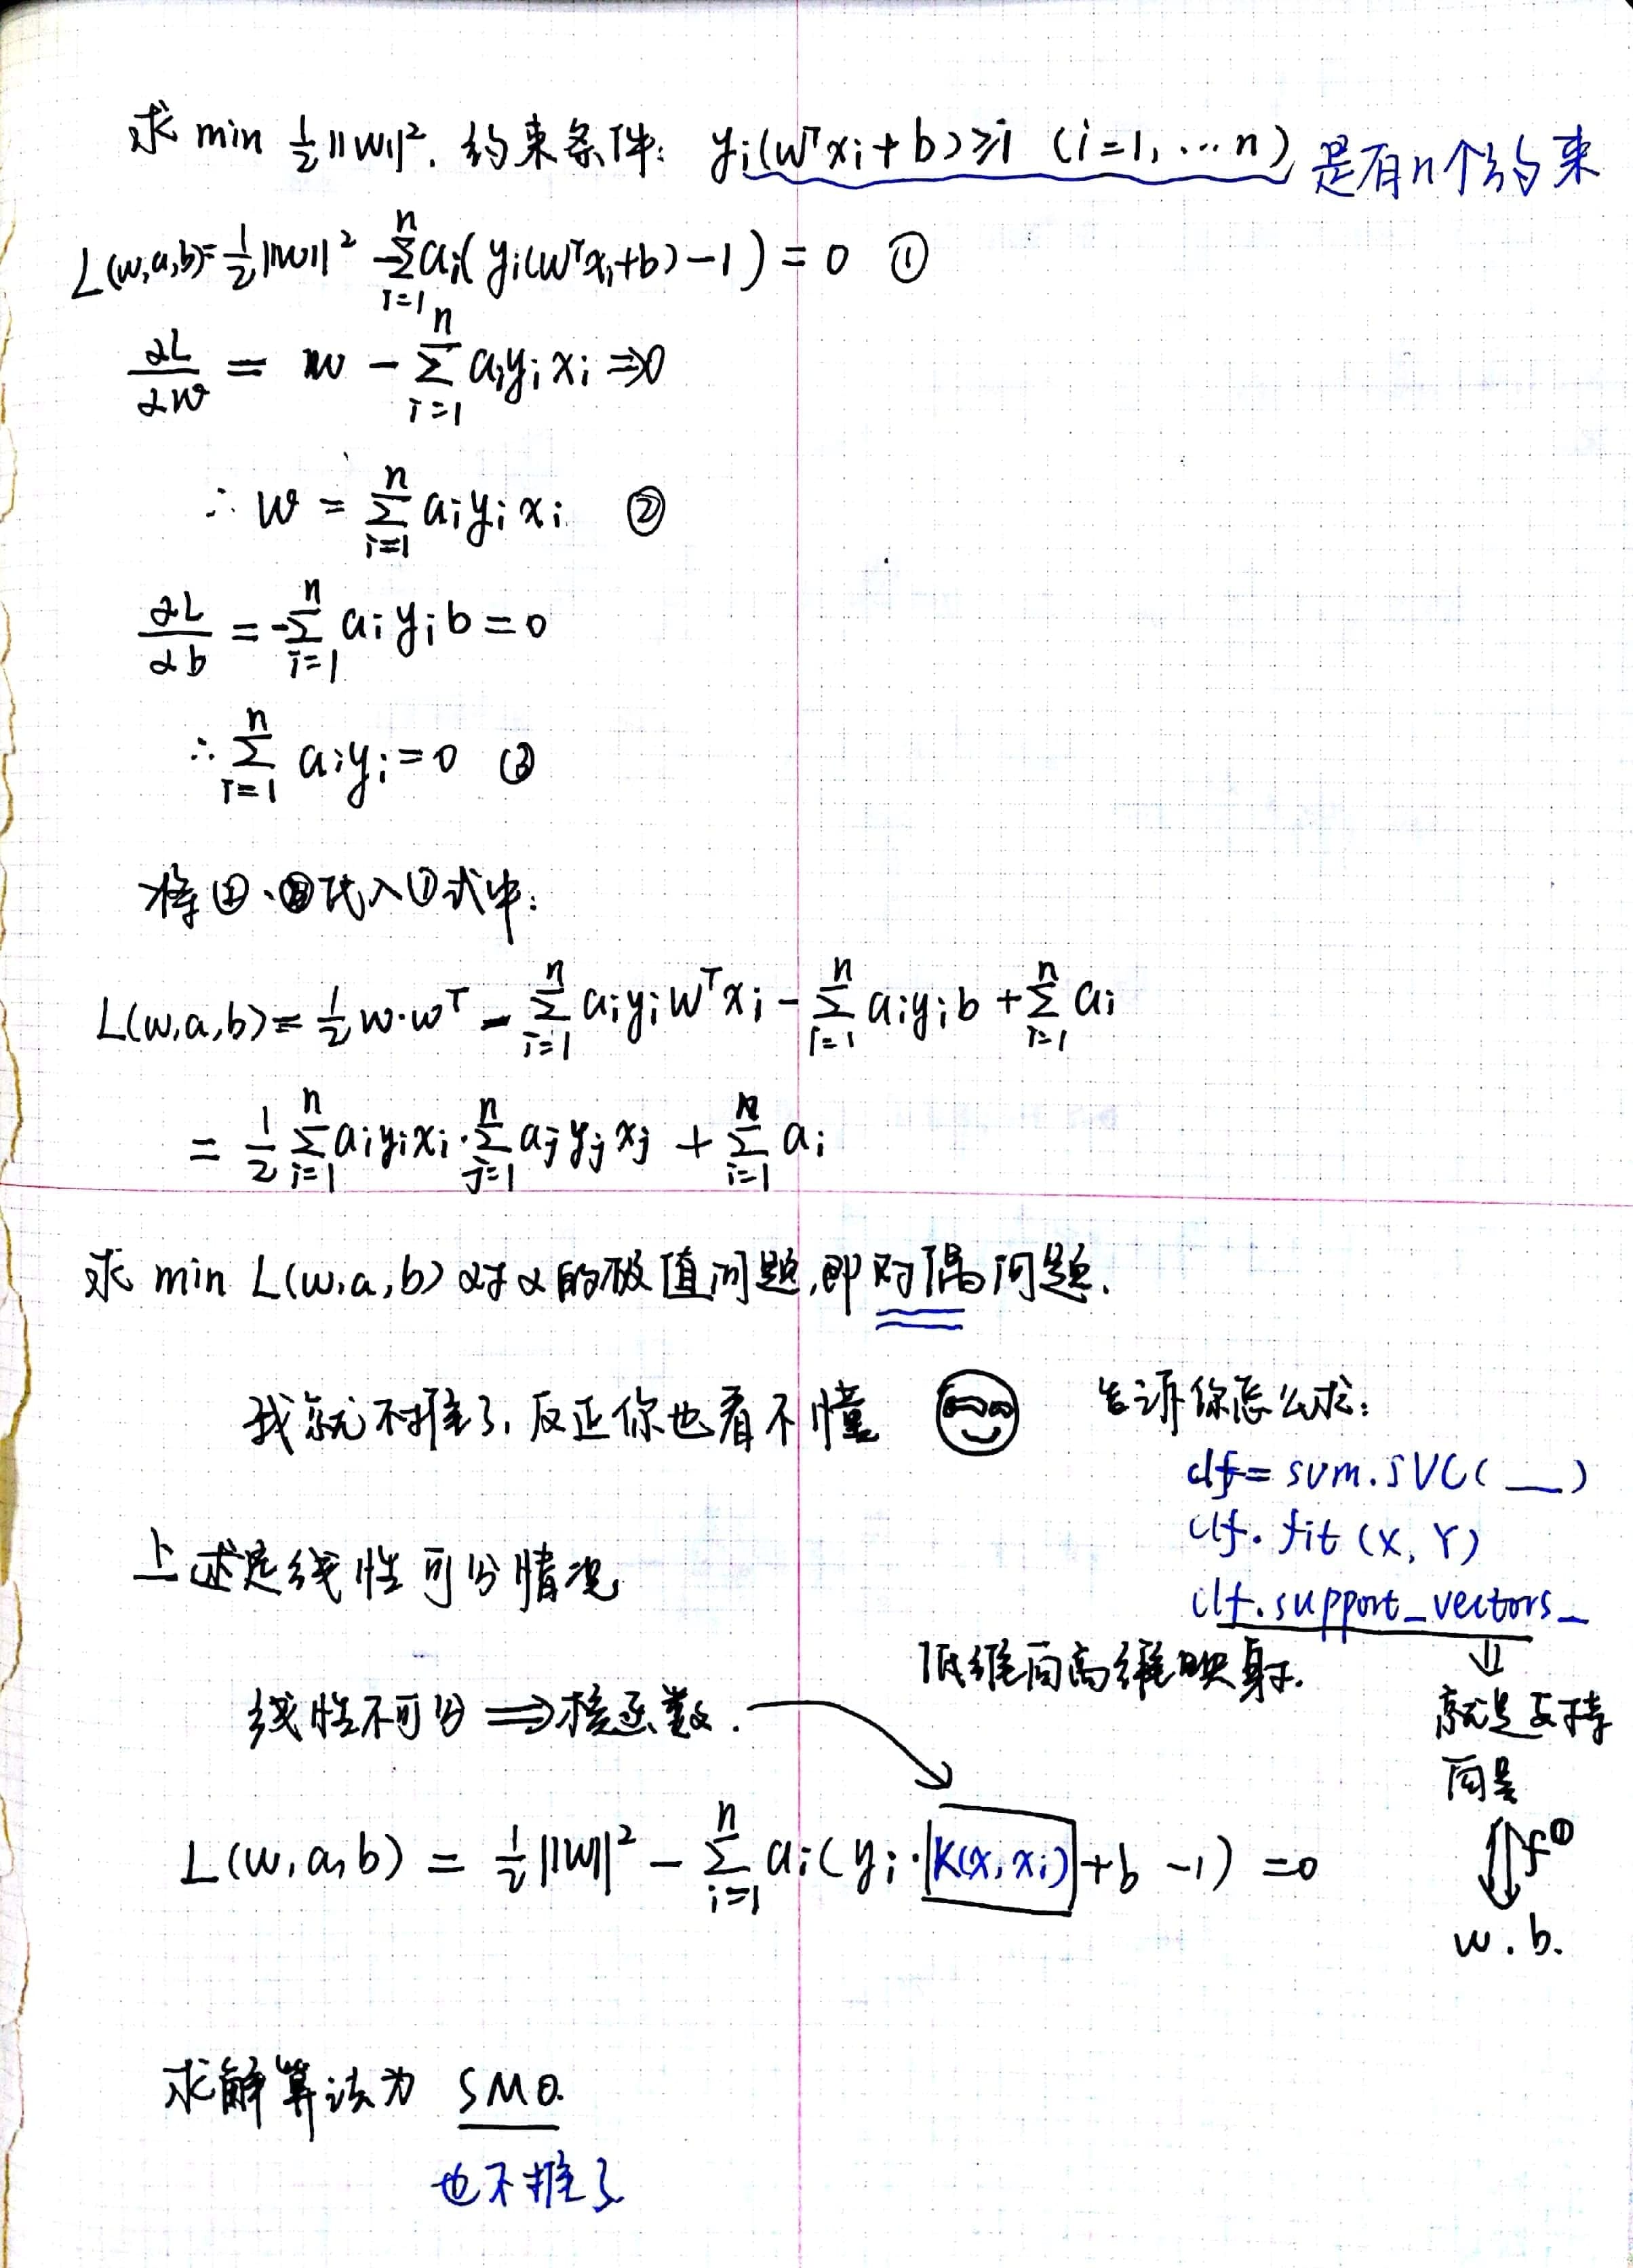 求 min ½||w||². 约束条件: yᵢ(wᵀxᵢ+b)≥1 (i=1,…n) 是有n个约束
L(w,a,b)=½||w||² -∑ᵢ₌₁ⁿaᵢ(yᵢ(wᵀxᵢ+b)-1)=0 ①
∂L/∂w = w - ∑ᵢ₌₁ⁿ aᵢyᵢxᵢ ⇒0
∴ w = ∑ᵢ₌₁ⁿ aᵢyᵢxᵢ ②
∂L/∂b = -∑ᵢ₌₁ⁿ aᵢyᵢb = 0
∴ ∑ᵢ₌₁ⁿ aᵢyᵢ=0 ③
将②、③代入①式中:
L(w,a,b) = ½w·wᵀ - ∑ᵢ₌₁ⁿ aᵢyᵢwᵀxᵢ - ∑ᵢ₌₁ⁿ aᵢyᵢb + ∑ᵢ₌₁ⁿ aᵢ
= ½ ∑ᵢ₌₁ⁿ aᵢyᵢxᵢ·∑ⱼ₌₁ⁿ aⱼyⱼxⱼ + ∑ᵢ₌₁ⁿ aᵢ
求 min L(w,a,b) 对α的极值问题,即对偶问题.
我就不推了,反正你也看不懂
告诉你怎么求:
clf = svm.SVC( __ )
clf.fit (X, Y)
clf.support_vectors_
⇓
就是支持
向量
⇕f①
w.b.
上述是线性可分情况
低维向高维映射.
线性不可分 ⇒核函数.
L(w,a,b) = ½||w||² - ∑ᵢ₌₁ⁿ aᵢ(yᵢ·K(x,xᵢ)+b -1) =0
求解算法为 SMO.
也不推了